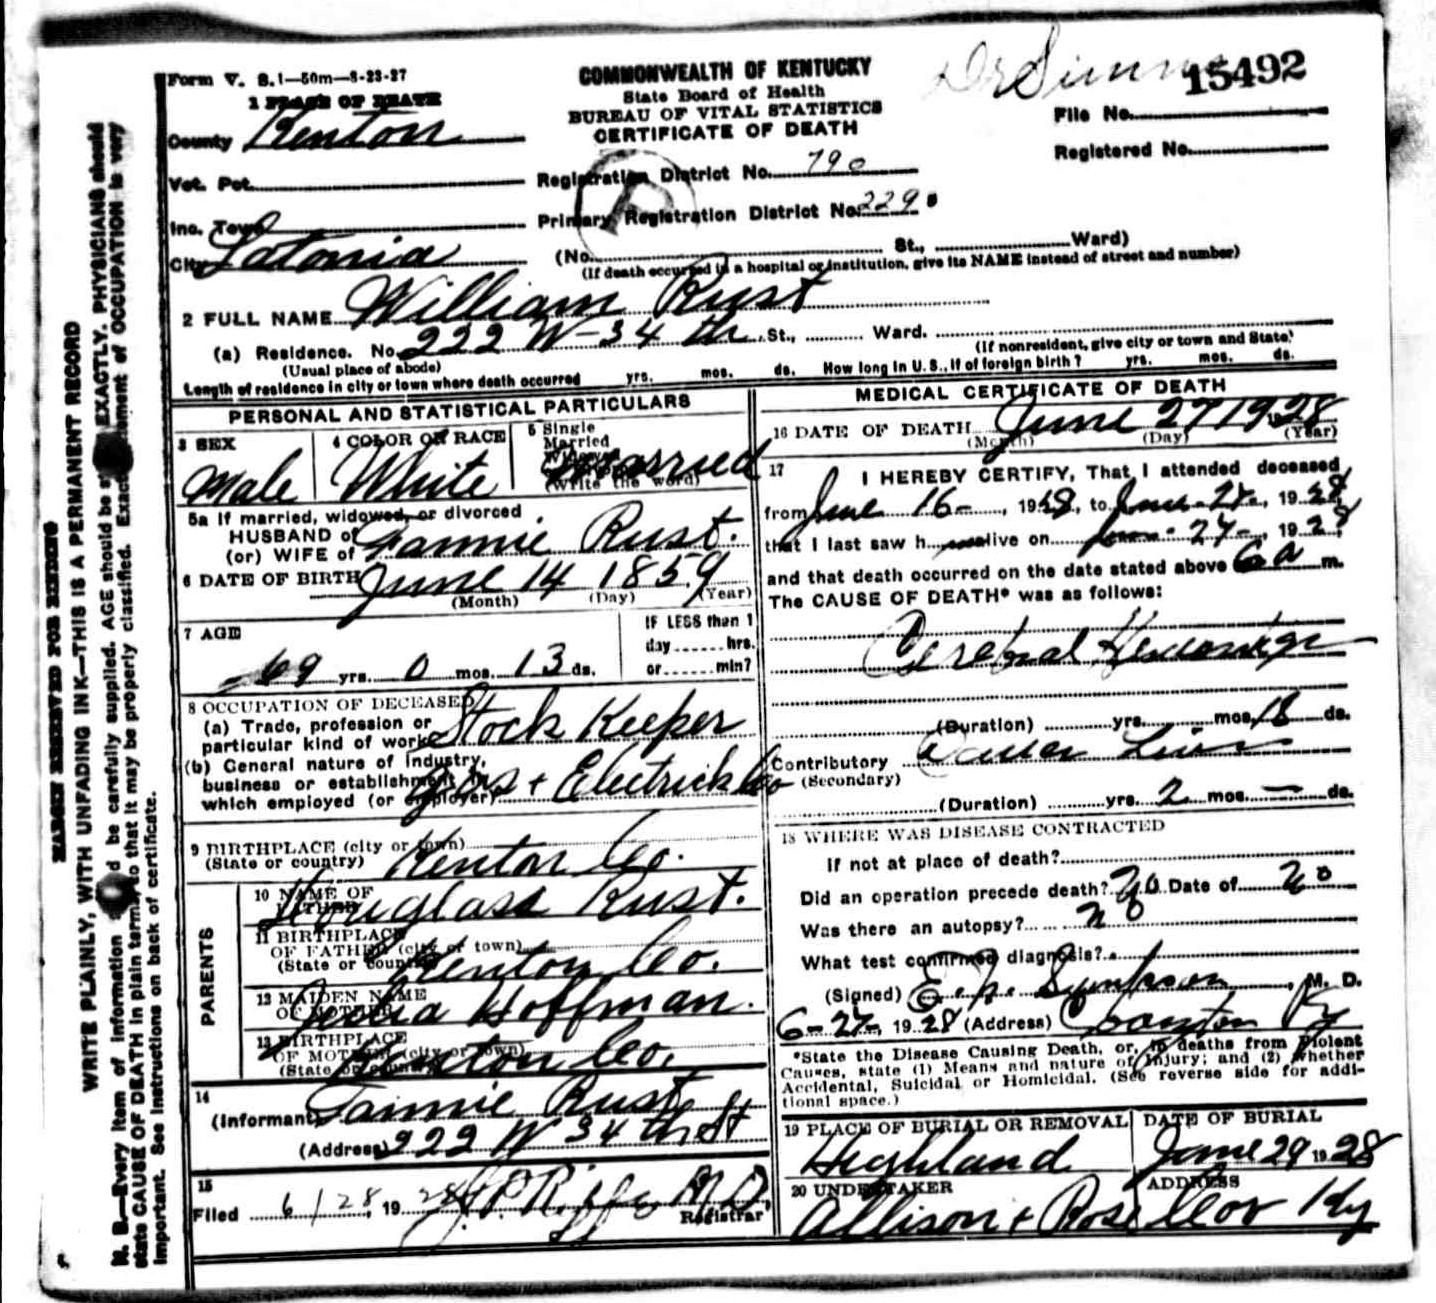 Form V. S. 1—50m—8-23-27
COMMONWEALTH OF KENTUCKY
State Board of Health
BUREAU OF VITAL STATISTICS
CERTIFICATE OF DEATH
15492
File No.
Registered No.
1 PLACE OF DEATH
County Kenton
Vot. Pct.
Registration District No. 790
Inc. Town
Primary Registration District No. 2290
City Latonia
(No. St., Ward)
(If death occurred in a hospital or institution, give its NAME instead of street and number)
2 FULL NAME William Rust
(a) Residence. No. 222 W-34 th St., Ward.
(Usual place of abode)
(If nonresident, give city or town and State)
Length of residence in city or town where death occurred yrs. mos. ds. How long in U. S., if of foreign birth? yrs. mos. ds.
PERSONAL AND STATISTICAL PARTICULARS
3 SEX
Male
4 COLOR OR RACE
White
5 Single
Married
Widowed
(Write the word)
Married
5a If married, widowed, or divorced
HUSBAND of
(or) WIFE of Fannie Rust.
6 DATE OF BIRTH June 14 1859
(Month) (Day) (Year)
7 AGE
69 yrs. 0 mos. 13 ds.
IF LESS than 1
day ...... hrs.
or ...... min?
8 OCCUPATION OF DECEASED
(a) Trade, profession or
particular kind of work Stock Keeper
(b) General nature of industry,
business or establishment in
which employed (or employer) Gas + Electrick Co
9 BIRTHPLACE (city or town)
(State or country) Kenton Co.
PARENTS
10 NAME OF
FATHER Douglass Rust.
11 BIRTHPLACE
OF FATHER (city or town)
(State or country) Kenton Co.
12 MAIDEN NAME
OF MOTHER Julia Hoffman.
13 BIRTHPLACE
OF MOTHER (city or town)
(State or country) Kenton Co.
14
(Informant) Fannie Rust
(Address) 222 W 34 th St
15
Filed 6/28, 1928
Registrar
MEDICAL CERTIFICATE OF DEATH
16 DATE OF DEATH June 27 1928
(Month) (Day) (Year)
17
I HEREBY CERTIFY, That I attended deceased
from June 16-, 1928, to June-27-, 1928
that I last saw h alive on June-27-, 1928
and that death occurred on the date stated above 6a m.
The CAUSE OF DEATH* was as follows:
Cerebral Hemorrhage
(Duration) yrs. mos. 18 ds.
Contributory
(Secondary)
(Duration) yrs. 2 mos. — ds.
18 WHERE WAS DISEASE CONTRACTED
If not at place of death?
Did an operation precede death? No Date of no
Was there an autopsy? no
What test confirmed diagnosis?
(Signed) Simpson, M. D.
6-27-, 1928 (Address) Ky
*State the Disease Causing Death, or, in deaths from Violent
Causes, state (1) Means and nature of Injury; and (2) whether
Accidental, Suicidal or Homicidal. (See reverse side for addi-
tional space.)
19 PLACE OF BURIAL OR REMOVAL
Highland
DATE OF BURIAL
June 29 1928
20 UNDERTAKER
Allison + Rose
ADDRESS
Cov Ky
MARGIN RESERVED FOR BINDING
WRITE PLAINLY, WITH UNFADING INK—THIS IS A PERMANENT RECORD
N. B.—Every item of information should be carefully supplied. AGE should be stated EXACTLY. PHYSICIANS should
state CAUSE OF DEATH in plain terms, so that it may be properly classified. Exact statement of OCCUPATION is very
important. See instructions on back of certificate.